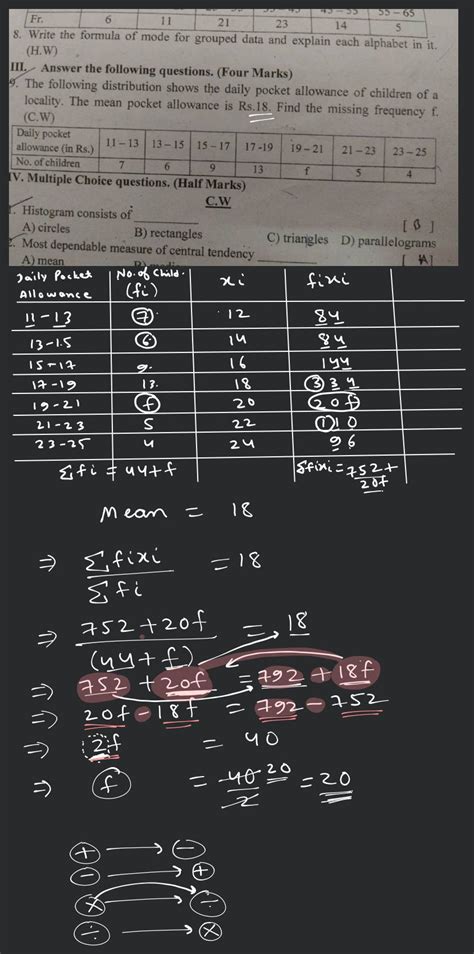 45-55 55-65
Fr. 6 11 21 23 14 5
8. Write the formula of mode for grouped data and explain each alphabet in it.
(H.W)
III. Answer the following questions. (Four Marks)
9. The following distribution shows the daily pocket allowance of children of a
locality. The mean pocket allowance is Rs.18. Find the missing frequency f.
(C.W)
Daily pocket
allowance (in Rs.) 11 – 13 13 – 15 15 – 17 17 -19 19 – 21 21 – 23 23 – 25
No. of children 7 6 9 13 f 5 4
IV. Multiple Choice questions. (Half Marks)
C.W
1. Histogram consists of ________ [ B ]
A) circles B) rectangles C) triangles D) parallelograms
2. Most dependable measure of central tendency ________ [ A ]
A) mean
Daily Pocket Allowance No. of Child. (fi) xi fixi
11-13 7 12 84
13-15 6 14 84
15-17 9. 16 144
17-19 13. 18 334
19-21 f 20 20f
21-23 5 22 110
23-25 4 24 96
Σfi = 44+f Σfixi = 752+20f
Mean = 18
⇒ Σfixi / Σfi = 18
⇒ 752+20f / (44+f) = 18
⇒ 752 + 20f = 792 + 18f
⇒ 20f - 18f = 792 - 752
⇒ 2f = 40
⇒ f = 40/2 20 = 20
+ → -
- → +
× → ÷
÷ → ×